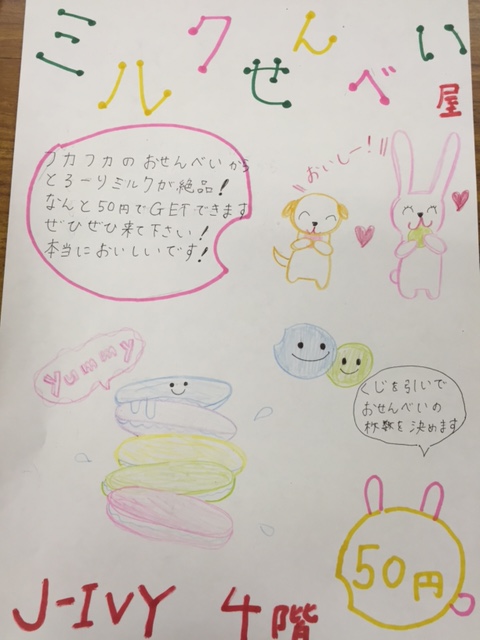 ミルクせんべい屋
フカフカのおせんべいから
とろーりミルクが絶品!
なんと50円でGETできます
ぜひぜひ来て下さい!
本当においしいです!
おいしー!!
yummy
くじを引いて
おせんべいの
枚数を決めます
50円
J-IVY 4階